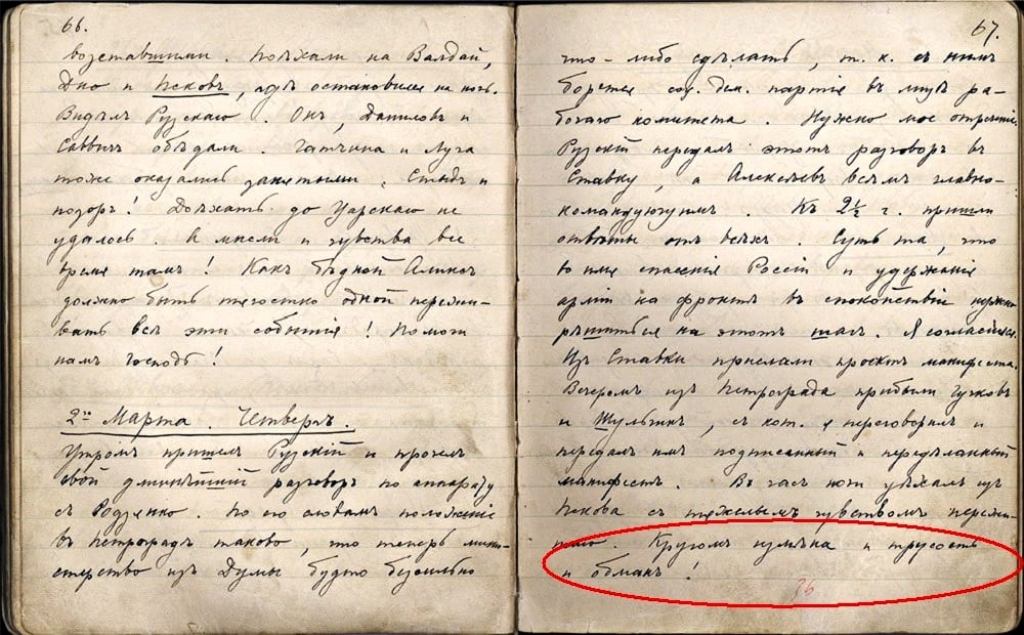 66.
возставшими. Поѣхали на Валдай,
Дно и Псковъ, гдѣ остановился на ночь.
Видѣлъ Рузскаго. Онъ, Даниловъ и
Саввичъ обѣдали. Гатчина и Луга
тоже оказались занятыми. Стыдъ и
позоръ! Доѣхать до Царскаго не
удалось. А мысли и чувства все
время тамъ! Какъ бѣдной Аликсъ
должно быть тягостно одной пережи-
вать всѣ эти событія! Помоги
намъ Господь!
2го Марта. Четвергъ.
Утромъ пришелъ Рузскій и прочелъ
свой длиннѣйшій разговоръ по аппарату
съ Родзянко. По его словамъ положеніе
въ Петроградѣ таково, что теперь мини-
стерство изъ Думы будто безсильно
67.
что-либо сдѣлать, т. к. съ нимъ
борется соц. дем. партія въ лицѣ ра-
бочаго комитета. Нужно мое отреченіе.
Рузскій передалъ этотъ разговоръ въ
Ставку, а Алексѣевъ всѣмъ главно-
командующимъ. Къ 2½ ч. пришли
отвѣты отъ всѣхъ. Суть та, что
во имя спасенія Россіи и удержанія
арміи на фронтѣ въ спокойствіи нужно
рѣшиться на этотъ шагъ. Я согласился.
Изъ Ставки прислали проектъ манифеста.
Вечеромъ изъ Петрограда прибыли Гучковъ
и Шульгинъ, съ кот. я переговорилъ и
передалъ имъ подписанный и передѣланный
манифестъ. Въ часъ ночи уѣхалъ изъ
Пскова съ тяжелымъ чувствомъ пережи-
таго. Кругомъ измѣна и трусость
и обманъ!
36